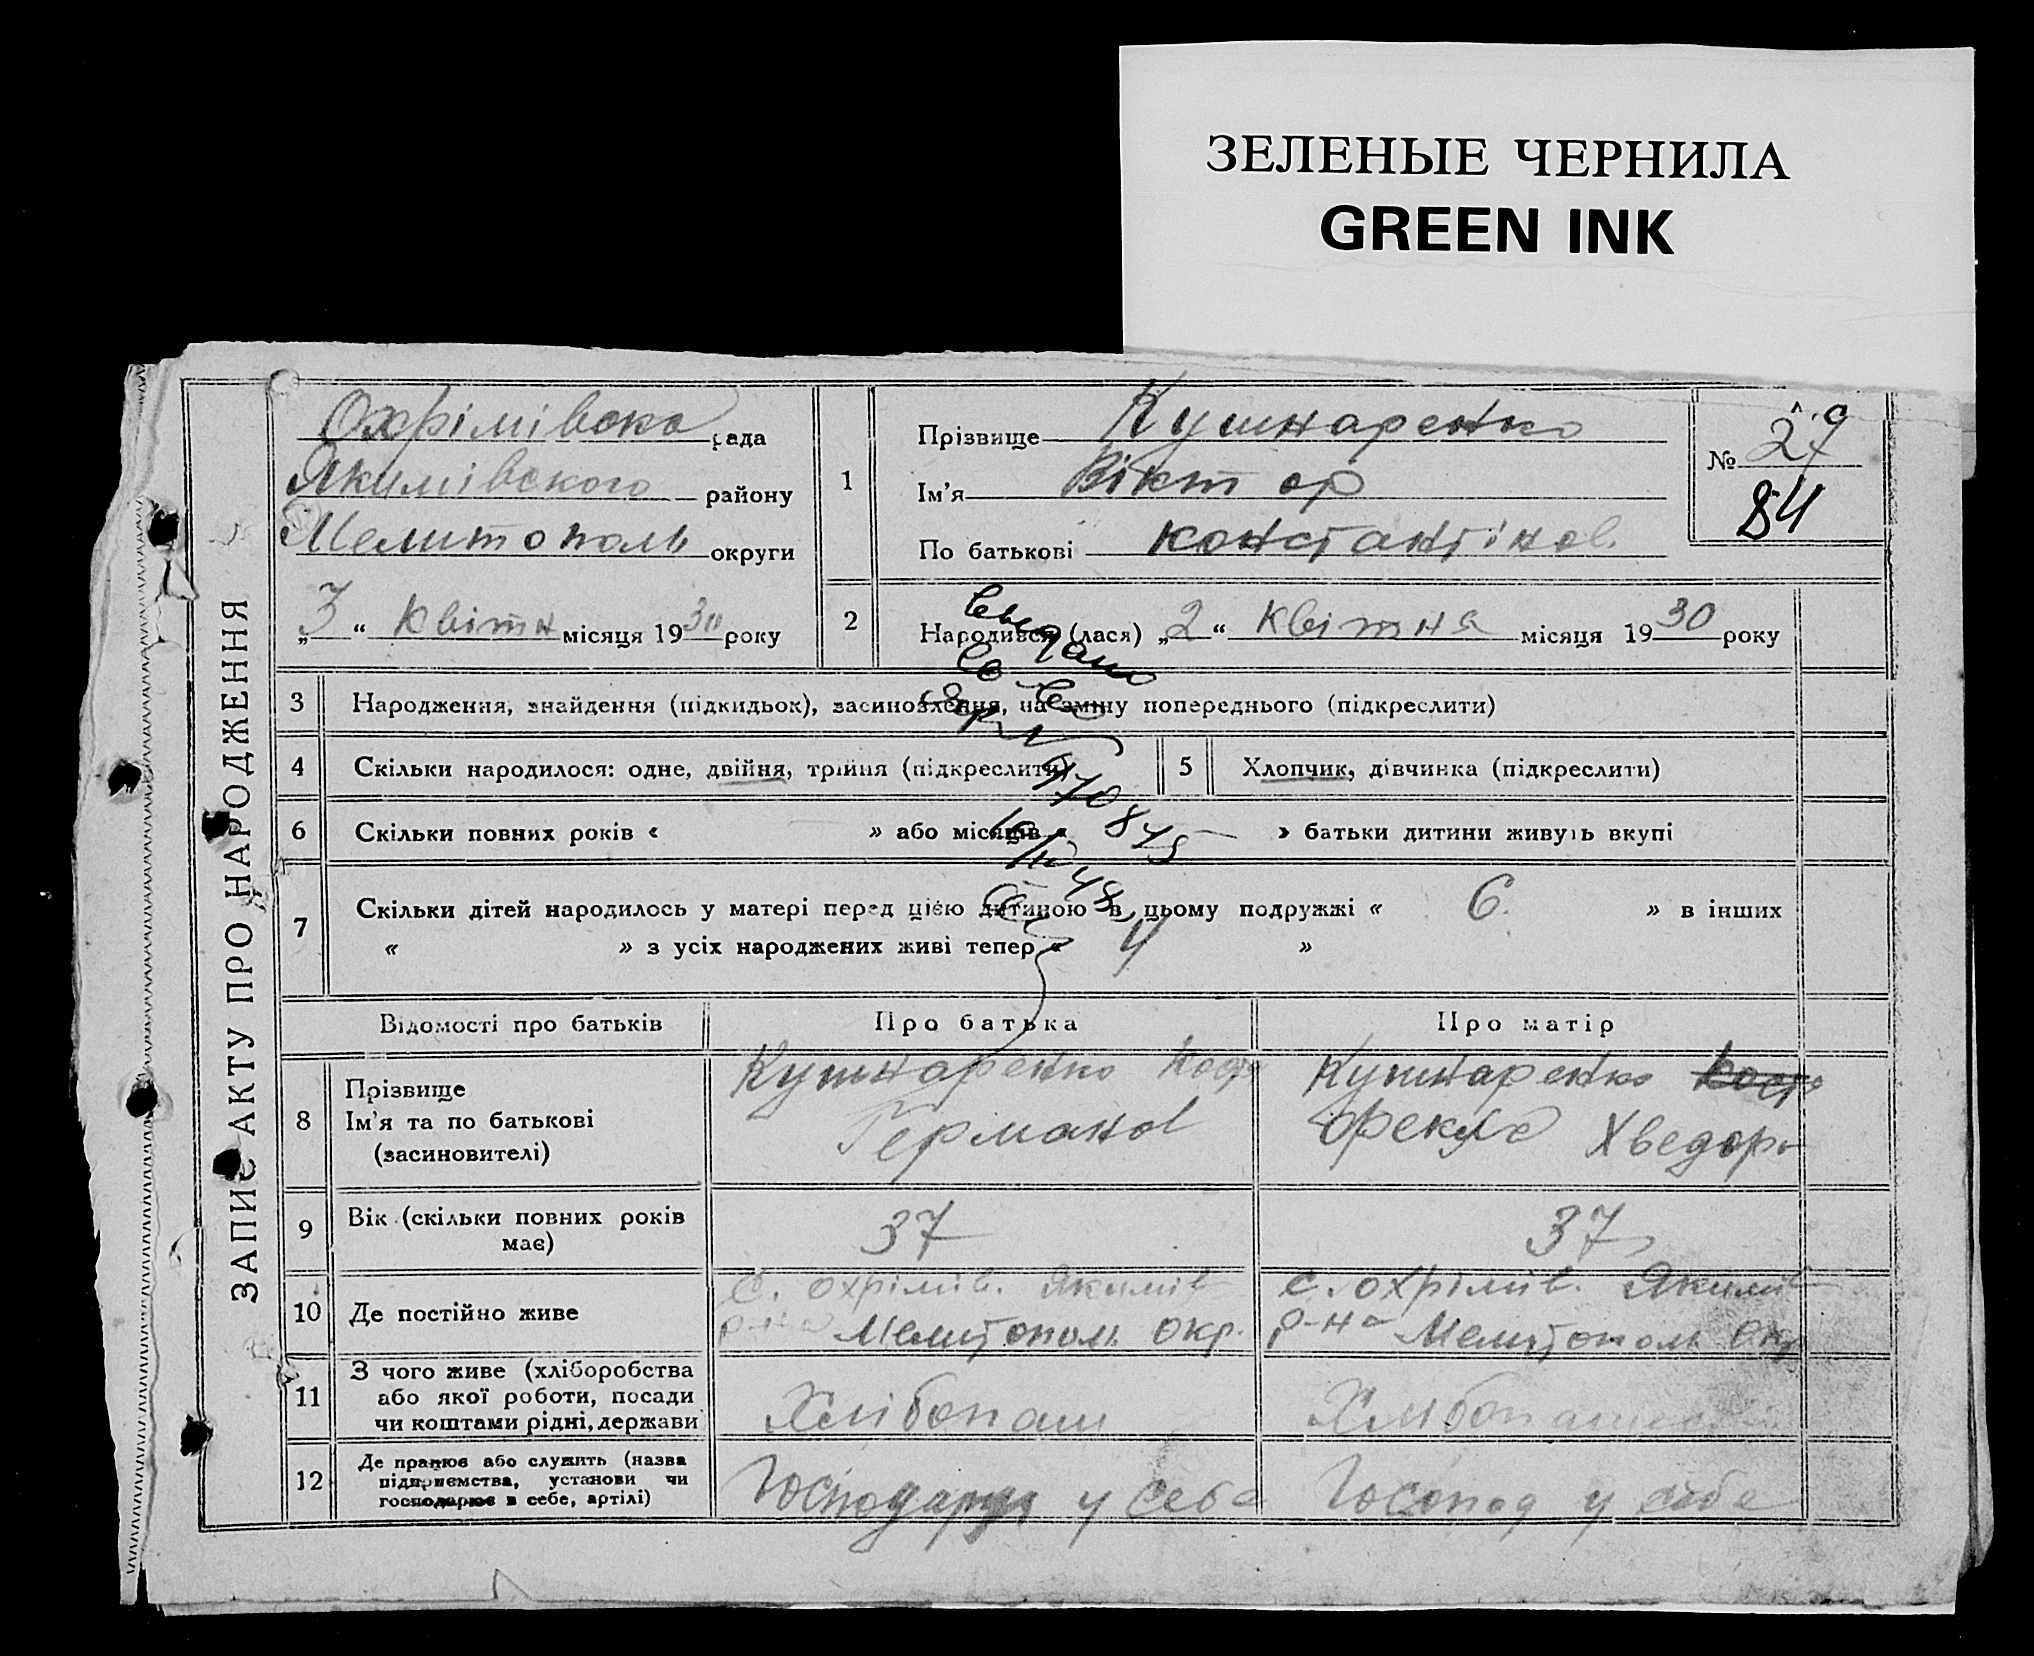 ЗЕЛЕНЫЕ ЧЕРНИЛА
GREEN INK
ЗАПИС АКТУ ПРО НАРОДЖЕННЯ
Охрімівска рада
Якимівского району
Мелитополь округи
„3“ Квітн місяця 1930 року
1
Прізвище Кушнаренко
Ім'я Віктор
По батькові Константінов.
№ 27
84
2 Народився (лася) „2“ Квітня місяця 1930 року
3 Народження, знайдення (підкидьок), засиновлення, на зміну попереднього (підкреслити)
4 Скільки народилося: одне, двійня, трійня (підкреслити)
5 Хлопчик, дівчинка (підкреслити)
6 Скільки повних років « » або місяців « » батьки дитини живуть вкупі
7 Скільки дітей народилось у матері перед цією дитиною в цьому подружжі « 6. » в інших
« » з усіх народжених живі тепер « 4 »
Выдано
св-во
470845
Відомості про батьків Про батька Про матір
8 Прізвище
Ім'я та по батькові
(засиновителі)
Кушнаренко Кост
Германов
Кушнаренко Кост
Орекля Хведор
9 Вік (скільки повних років має)
37
37
10 Де постійно живе
с. Охрімів. Якимів
р-на Мелітополь окр.
с. Охрімів. Якимів
р-на Мелітополь окр
11 З чого живе (хліборобства
або якої роботи, посади
чи коштами рідні, держави
Хлібопаш
Хлібопаш
12 Де працює або служить (назва
підприємства, установи чи
господарює в себе, артілі)
Господарує у себе
Господ у себе